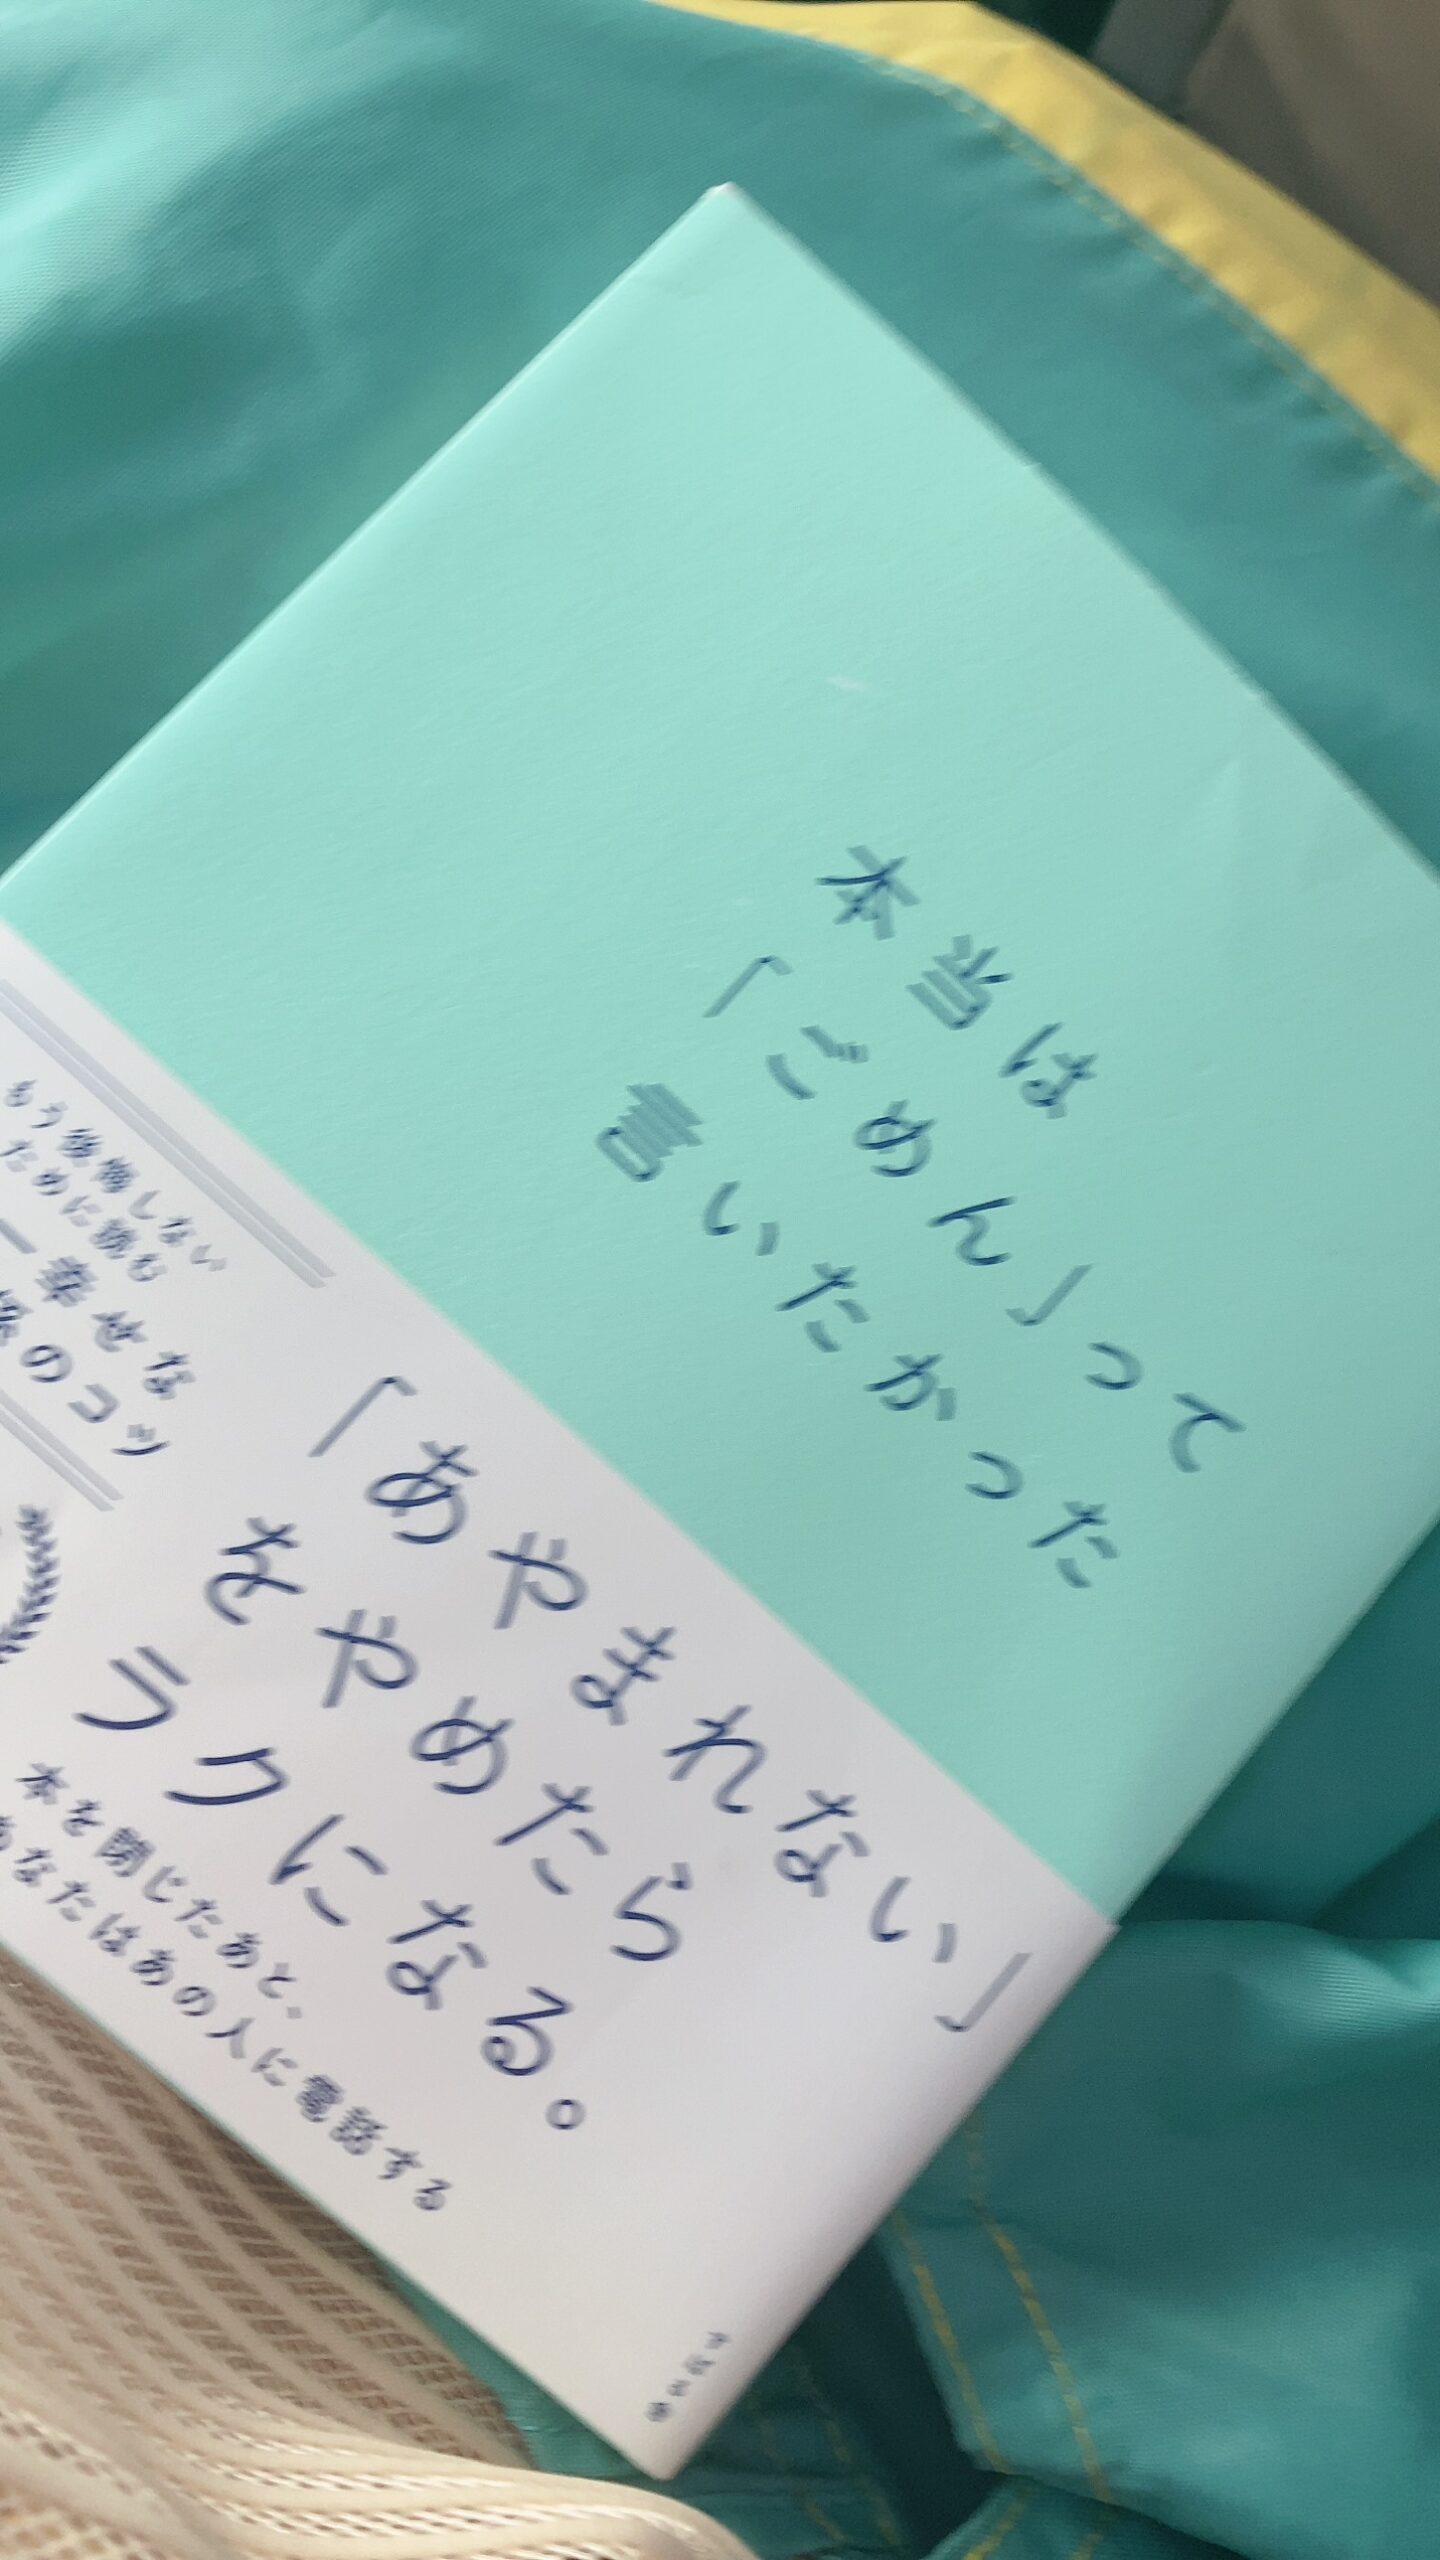 本当は
「ごめん」って
言いたかった
もう後悔しない
ために読む
幸せな
のコツ
「あやまれない」
をやめたら
ラクになる。
本を閉じたあと、
あなたはあの人に電話する